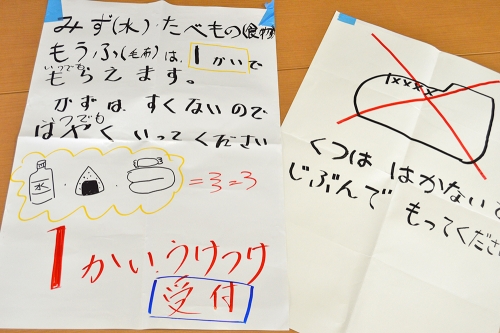 みず(水)・たべもの(食物)
もうふ(毛布)は、1かいで
いつでも
もらえます。
かずは すくないので
いつでも
はやく いってください
水
1かい うけつけ
受付
××××
くつは はかないで
じぶんで もってくださ